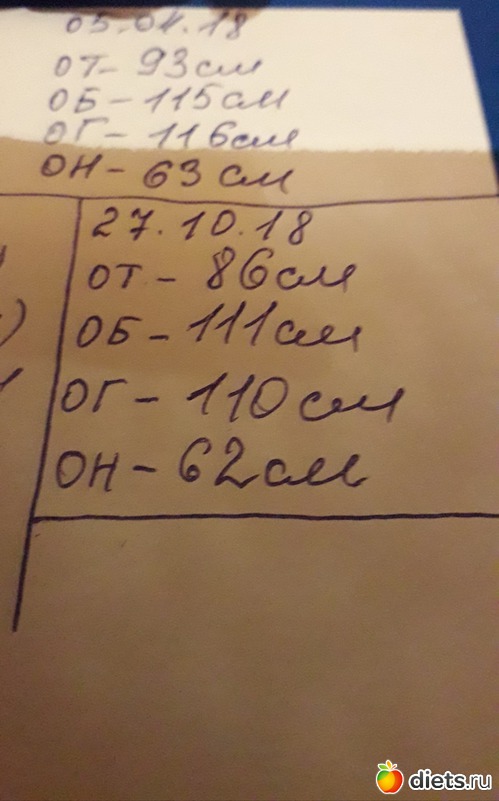 05.04.18
ОТ- 93см
ОБ - 115см
ОГ - 116см
ОН - 63 см
27.10.18
ОТ - 86см
ОБ - 111см
ОГ - 110см
ОН - 62см
diets.ru